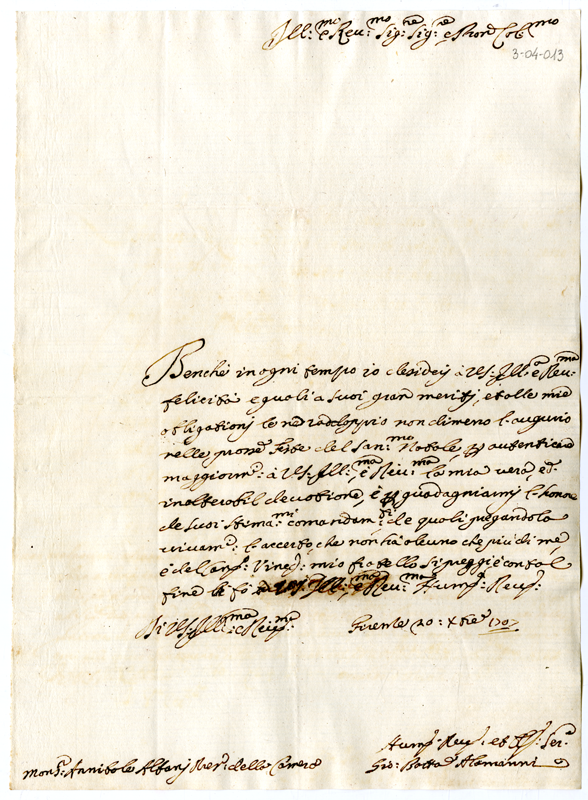 Ill:mo e Reu:mo Sig:re Sig:re e Pron Col:mo
3-04-013
Benche in ogni tempo io desiderj à VS: Ill:a e Reu:ma
felicità eguali a suoi gran meriti, et alle mie
obligationj le ne radoppio non dimeno l'augurio
nelle prone feste del San:mo Natale, p autenticare
maggiorm: à VS: Ill:ma e Reu:ma la mia vera, ed
inalterabil deuotione, e p guadagniarmj l'honore
de suoi stima:mi comandam:ti, de quali pregandola
viuam: l'accerto, che non ha alcuno che più di me,
e del mio fratello si preggi, e con tal
fine le fo VS: Ill:ma e Reu:ma Hum: Reu:
Di VS: Ill:ma e Reu:ma
Firenze 20: Xbre 1707
Hum: et Ser:
Gio: Botta Alamanni
Mons: Annibale Albanj della Camera